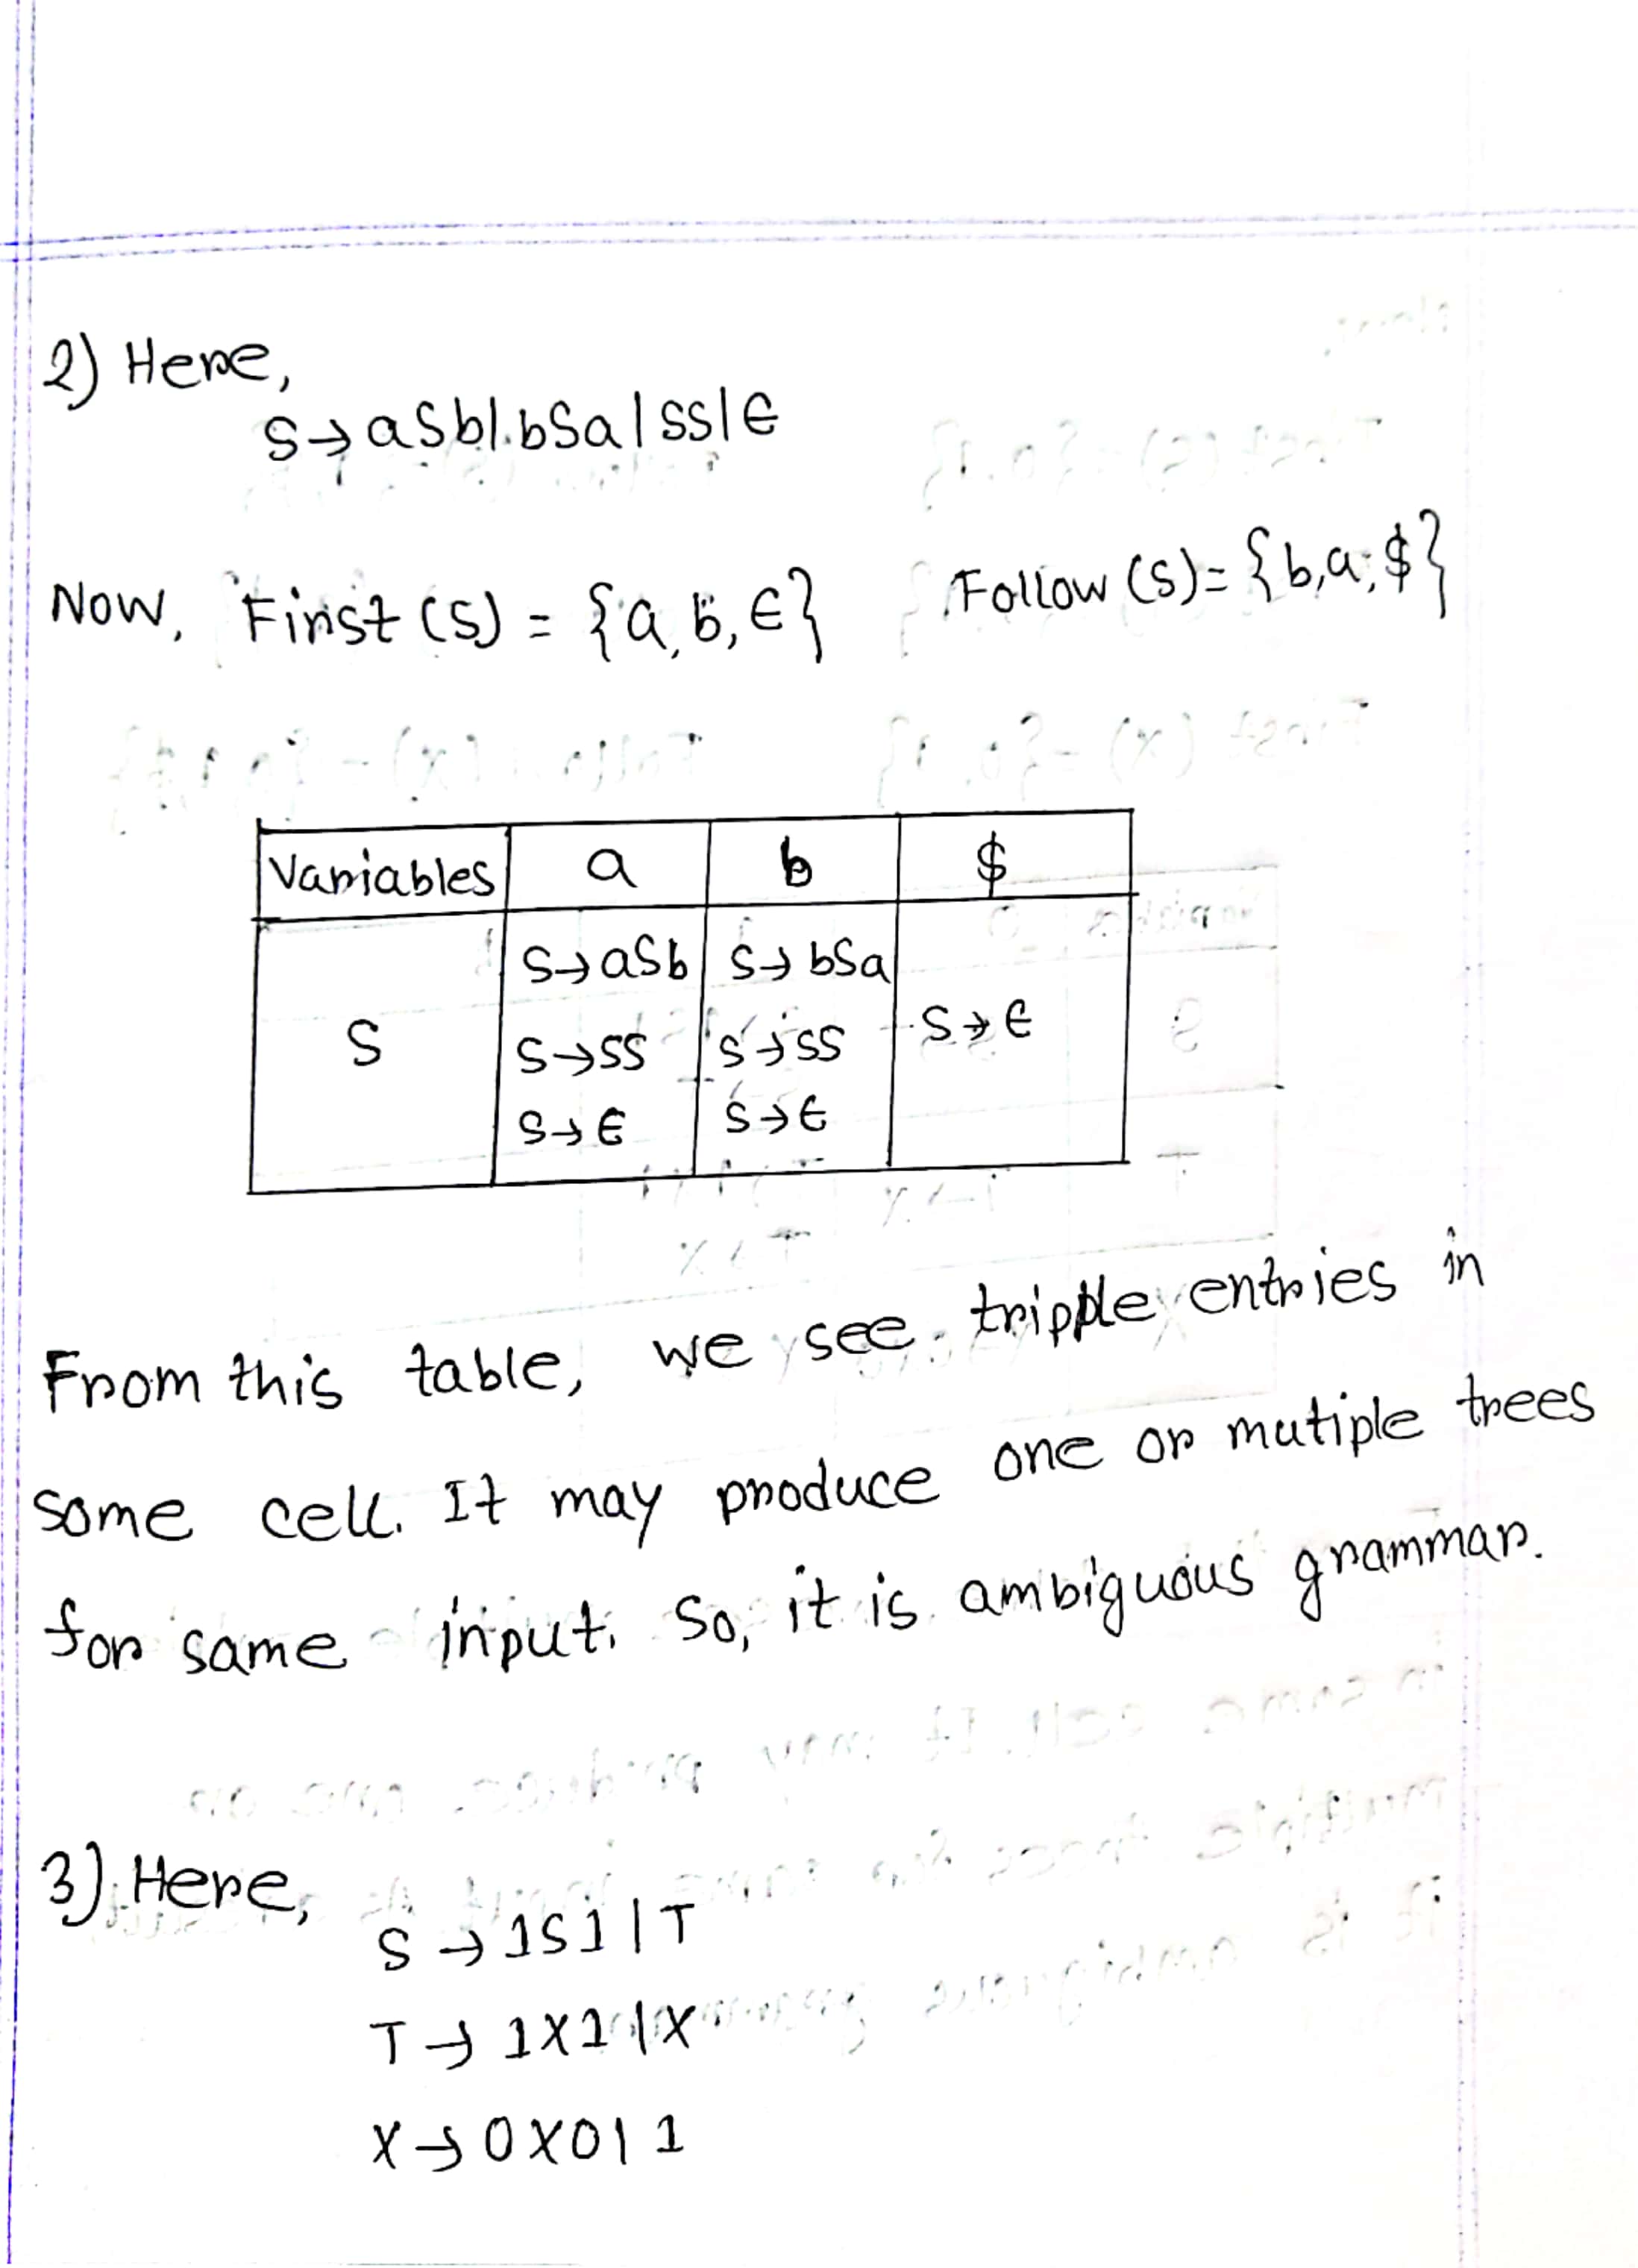 2) Here,
S→aSb|bSa|SS|ϵ
Now, First(S) = {a,b,ϵ} Follow(S)={b,a,$}
Variables a b $
S→aSb S→bSa
S S→SS S→SS S→ϵ
S→ϵ S→ϵ
From this table, we see tripple entries in
some cell. It may produce one or mutiple trees
for same input. So, it is ambiguous grammar.
3) Here,
S → 1S1|T
T → 1X1|X
X → 0X0|1